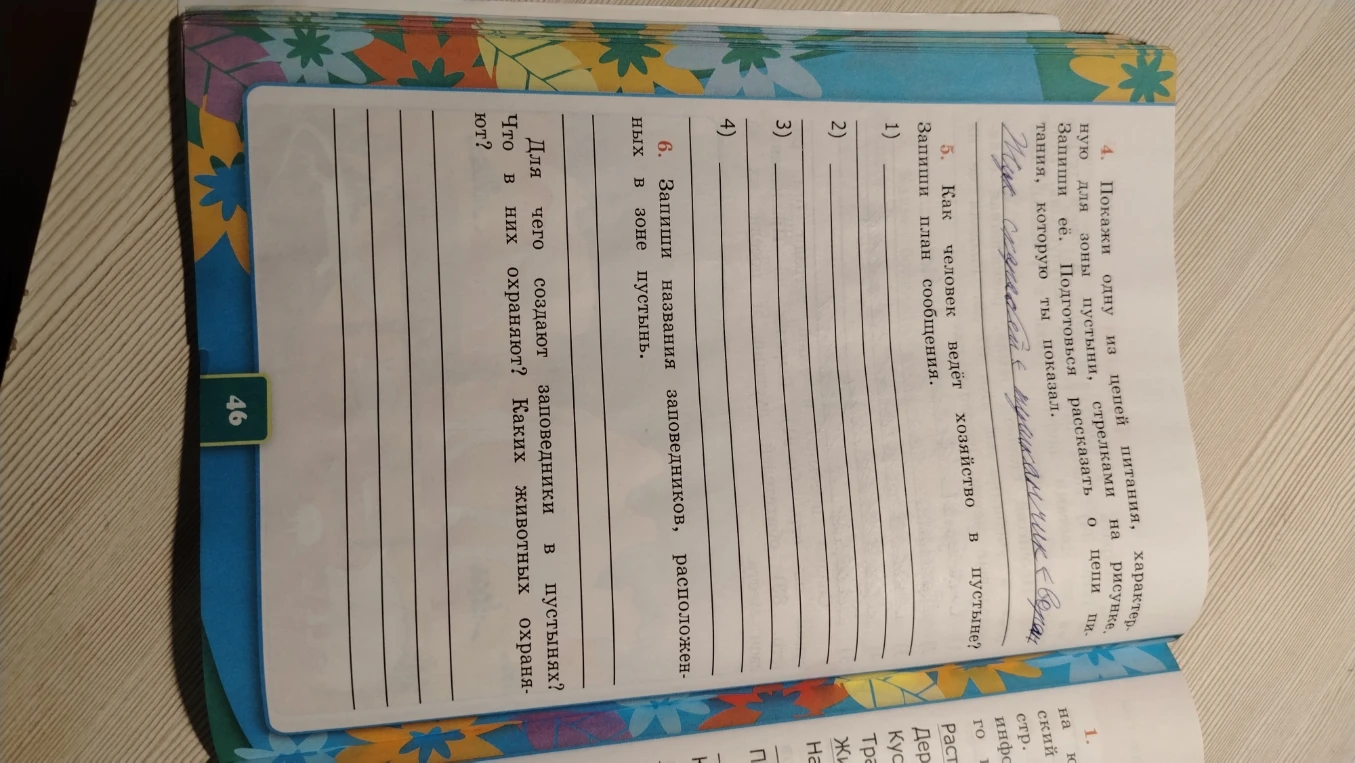 4. Покажи одну из цепей питания, характер-
ную для зоны пустыни, стрелками на рисунке.
Запиши её. Подготовься рассказать о цепи пи-
тания, которую ты показал.
Жук скарабей < тушканчик < варан
5. Как человек ведёт хозяйство в пустыне?
Запиши план сообщения.
1)
2)
3)
4)
6. Запиши названия заповедников, расположен-
ных в зоне пустынь.
Для чего создают заповедники в пустынях?
Что в них охраняют? Каких животных охраня-
ют?
46
1.
на
ский
стр.
инфо
го
Раст
Дер
Кус
Тра
Жи
На